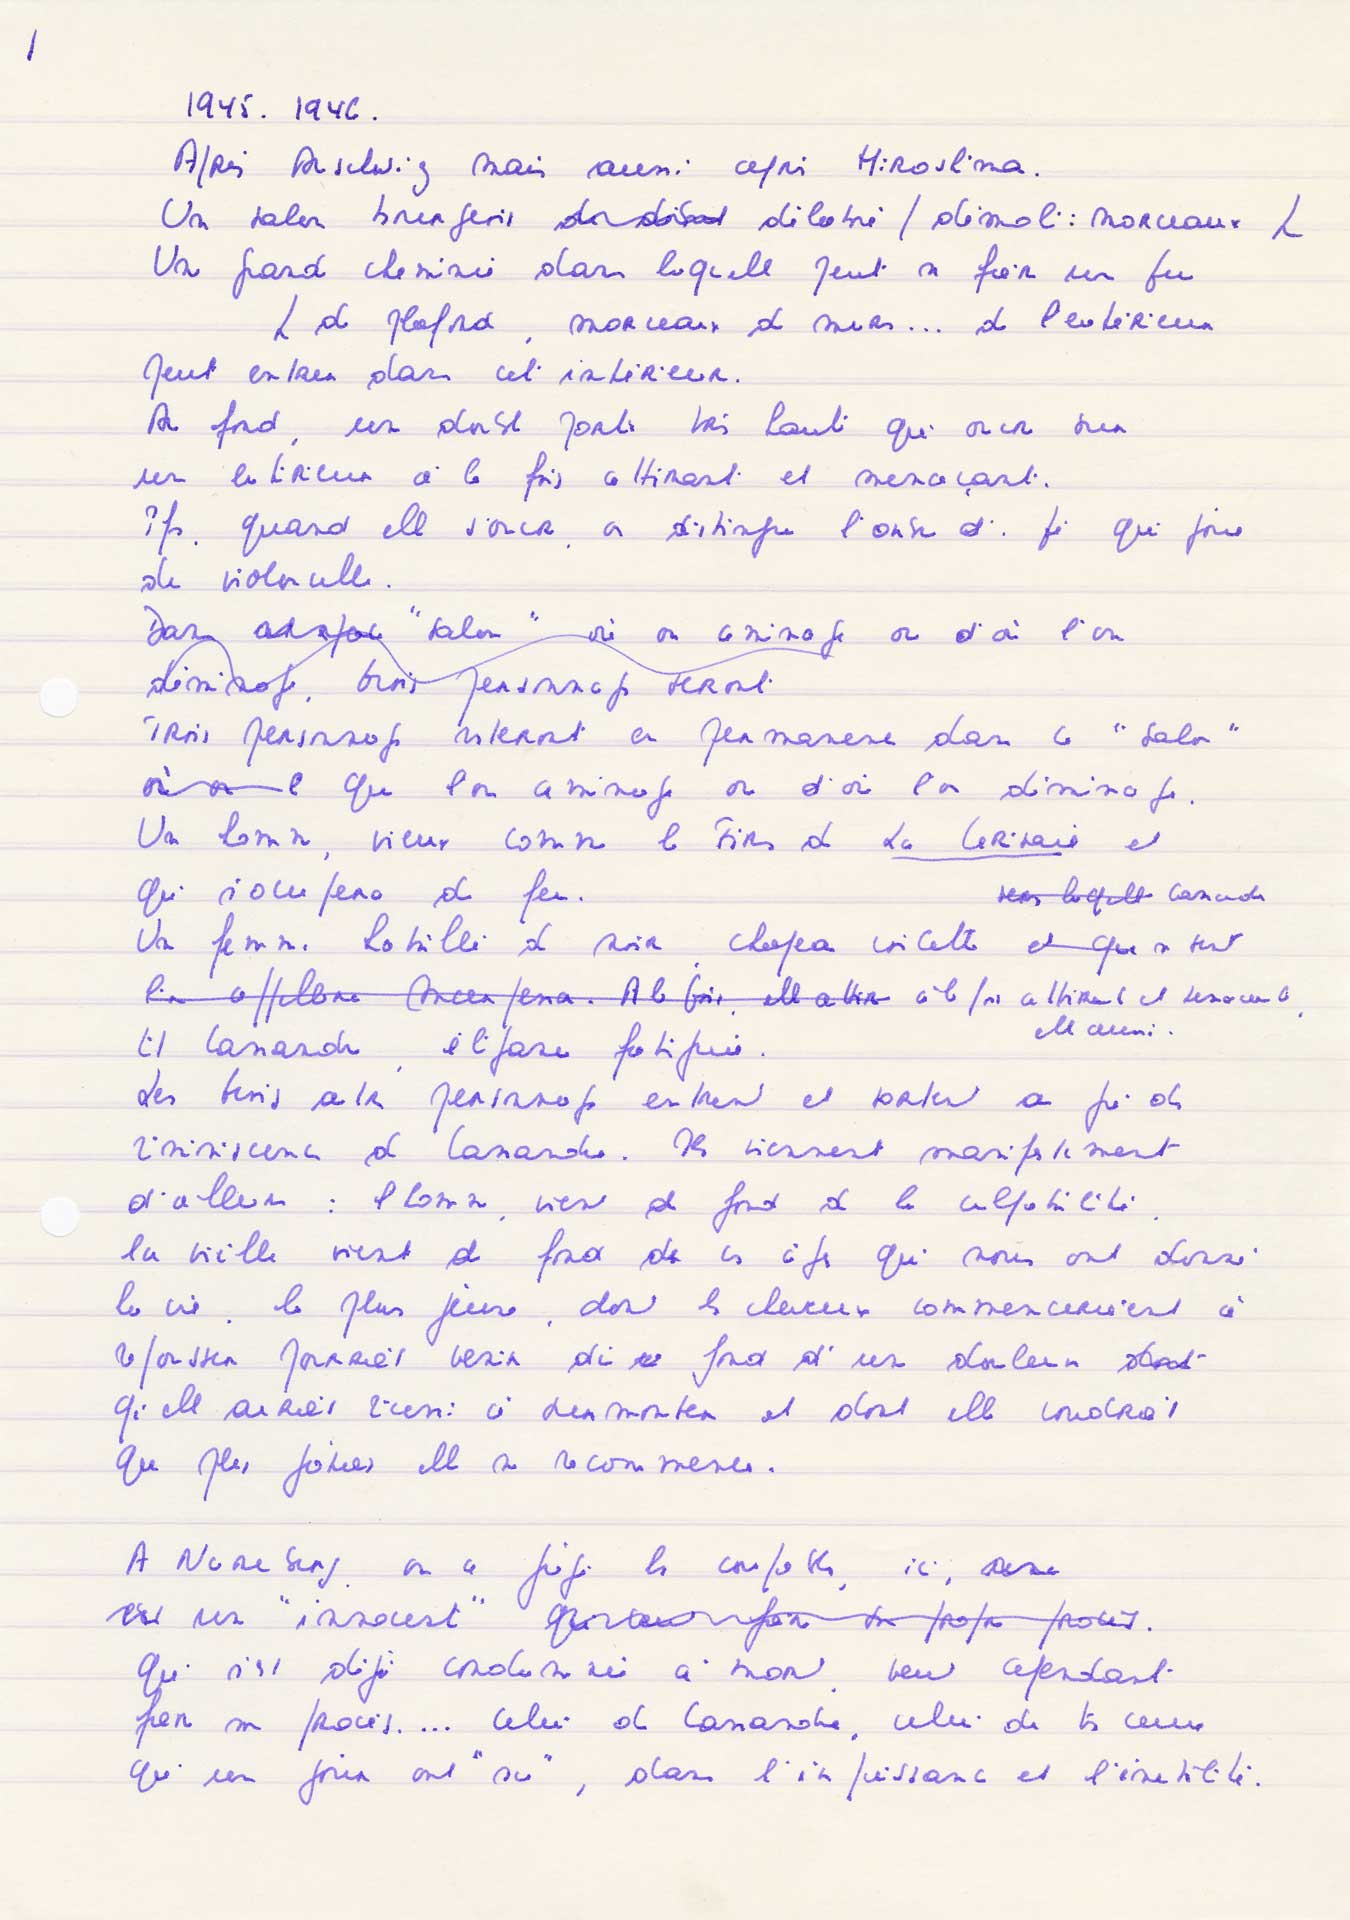 1
1945. 1946.
Après Auschwitz mais aussi après Hiroshima.
Un salon bourgeois délabré / démoli : morceaux L
Une grande cheminée dans laquelle peut se faire un feu
L de plafond, morceaux de murs... de l'extérieur
peut entrer dans cet intérieur.
Au fond, une double porte très haute qui ouvre sur
un extérieur à la fois attirant et menaçant.
Ifs. quand elle s'ouvre, on distingue l'ombre d' qui joue
du violoncelle.
Dans "salon" où on aménage ou d'où l'on
déménage, trois personnages seront
Trois personnages resteront en permanence dans ce "salon"
où on l que l'on aménage ou d'où l'on déménage.
Un homme, vieux comme le Firs de La Cerisaie et
qui s'occupera du feu.
vers laquelle Cassandre
Une femme. habillée de noir, chapeau voilette et que se sent
à la fois attirante et menaçante,
elle aussi.
Et Cassandre, élégance fatiguée.
Les trois autres personnages entrent et sortent au gré des
réminiscences de Cassandre. Ils viennent manifestement
d'ailleurs : l'homme, vient du fond de la culpabilité,
la vieille vient du fond de ces âges qui nous ont donné
la vie, la plus jeune, dont les cheveux commenceraient à
repousser pourrait venir du fond d'une douleur dont
qu'elle aurait réussi à surmonter et dont elle voudrait
que plus jamais elle ne recommence.
A Nuremberg, on a jugé les coupables, ici,
un "innocent" qui veut faire son propre procès.
qui s'est déjà condamné à mort, veut cependant
faire son procès.... celui de Cassandre, celui de tous ceux
qui un jour ont "su", dans l'impuissance et l'inutilité.